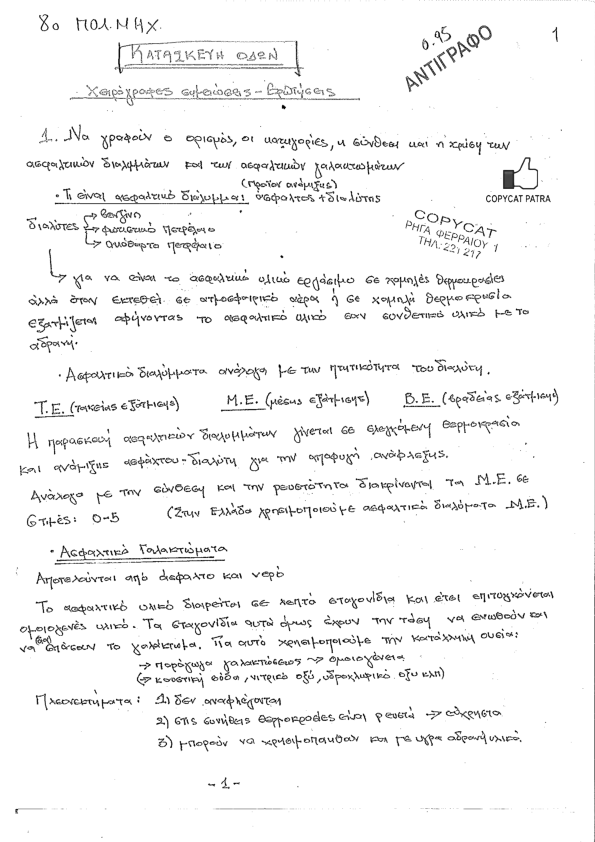 8ο ΠΟΛ. ΜΗΧ.
0.95
ΑΝΤΙΓΡΑΦΟ
1
ΚΑΤΑΣΚΕΥΗ ΟΔΩΝ
Χειρόγραφες σημειώσεις - Ερωτήσεις
1. Να γραφούν ο ορισμός, οι κατηγορίες, η σύνθεση και η χρήση των
ασφαλτικών διαλυμμάτων και των ασφαλτικών γαλακτωμάτων
(προϊόν ανάμιξης)
· Τι είναι ασφαλτικό διάλυμμα: άσφαλτος + διαλύτης
COPYCAT PATRA
διαλύτες → βενζίνη
→ φωτιστικό πετρέλαιο
→ ακάθαρτο πετρέλαιο
COPYCAT
ΡΗΓΑ ΦΕΡΡΑΙΟΥ 1
ΤΗΛ: 221 217
→ για να είναι το ασφαλτικό υλικό εργάσιμο σε χαμηλές θερμοκρασίες
αλλά όταν εκτεθεί σε ατμοσφαιρικό αέρα ή σε χαμηλή θερμοκρασία
εξατμίζεται αφήνοντας το ασφαλτικό υλικό σαν συνθετικό υλικό με το
αδρανή.
· Ασφαλτικά διαλύμματα ανάλογα με την πτητικότητα του διαλύτη.
Τ.Ε. (ταχείας εξάτμισης) Μ.Ε. (μέσης εξάτμισης) Β.Ε. (βραδείας εξάτμισης)
Η παρασκευή ασφαλτικών διαλυμμάτων γίνεται σε ελεγχόμενη θερμοκρασία
και ανάμιξης ασφάλτου-διαλύτη για την αποφυγή ανάφλεξης.
Ανάλογα με την σύνθεση και την ρευστότητα διακρίνονται τα Μ.Ε. σε
6 τιμές: 0-5 (Στην Ελλάδα χρησιμοποιούμε ασφαλτικά διαλύματα Μ.Ε.)
· Ασφαλτικά Γαλακτώματα
Αποτελούνται από άσφαλτο και νερό
Το ασφαλτικό υλικό διαιρείται σε λεπτά σταγονίδια και έτσι επιτυγχάνεται
ομοιογενές υλικό. Τα σταγονίδια αυτά όμως έχουν την τάση να ενωθούν και
να σπάσουν το γαλάκτωμα. Για αυτό χρησιμοποιούμε την κατάλληλη ουσία:
→ παράγωγα γαλακτώσεως → ομοιογένεια
(→ καυστική σόδα, νιτρικό οξύ, υδροχλωρικό οξυ κλπ)
Πλεονεκτήματα: 1) δεν αναφλέγονται
2) στις συνήθεις θερμοκρασίες είναι ρευστά → εύχρηστα
3) μπορούν να χρησιμοποιηθούν και με υγρα αδρανή υλικά.
- 1 -